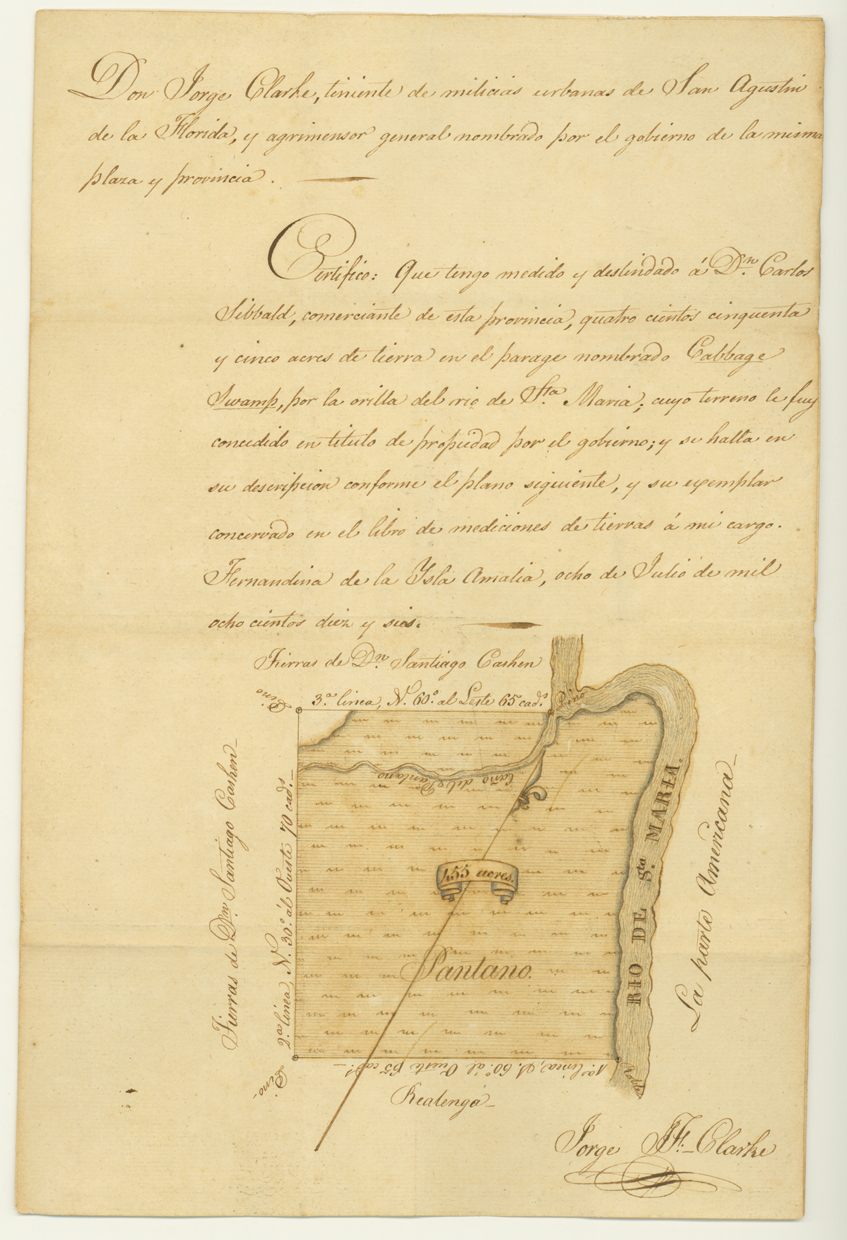 Don Jorge Clarke, teniente de milicias urbanas de San Agustin
de la Florida, y agrimensor general nombrado por el gobierno de la misma
plaza y provincia.
Certifico: Que tengo medido y deslindado á Dn. Carlos
Sibbald, comerciante de esta provincia, quatro cientos cinquenta
y cinco acres de tierra en el parage nombrado Cabbage
Swamp, por la orilla del rio de Sta Maria; cuyo terreno le fuy
concedido en titulo de propiedad por el gobierno; y se halla en
su descripcion conforme el plano siguiente, y su exemplar
concervado en el libro de mediciones de tierras á mi cargo.
Fernandina de la Ysla Amalia, ocho de Julio de mil
ocho cientos diez y seis.
Tierras de Dn. Santiago Cashen
Pino
3.a linea, N. 60.o al Leste 65 cad.s
Pino
Tierras de Dn. Santiago Cashen
2.a linea, N. 30.o al Oueste 70 cad.s
Caño del Pantano
455 acres.
Pantano.
RIO DE Sta MARIA.
La parte Americana
Pino
1.a linea, S. 60.o al Oueste 63 cad.s
Realenga
Jorge J. F. Clarke